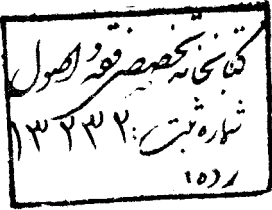 کتابخانه تخصصی فقه و اصول
شماره ثبت: ۱۳۲۳۲